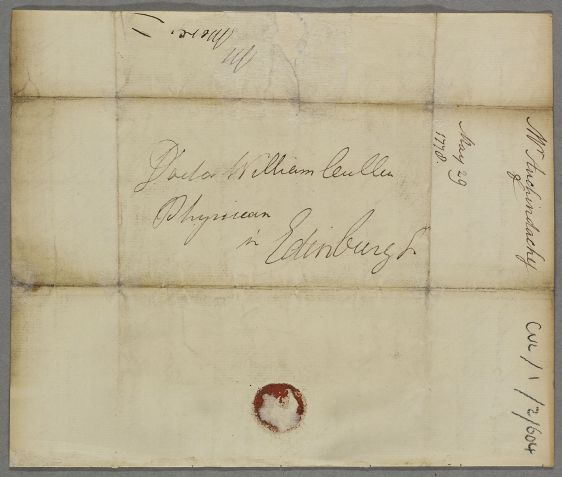 Doctor William Cullen
Physician
in Edinburgh
Mr Auchindachy
May 29
1778
CUL/1/2/604